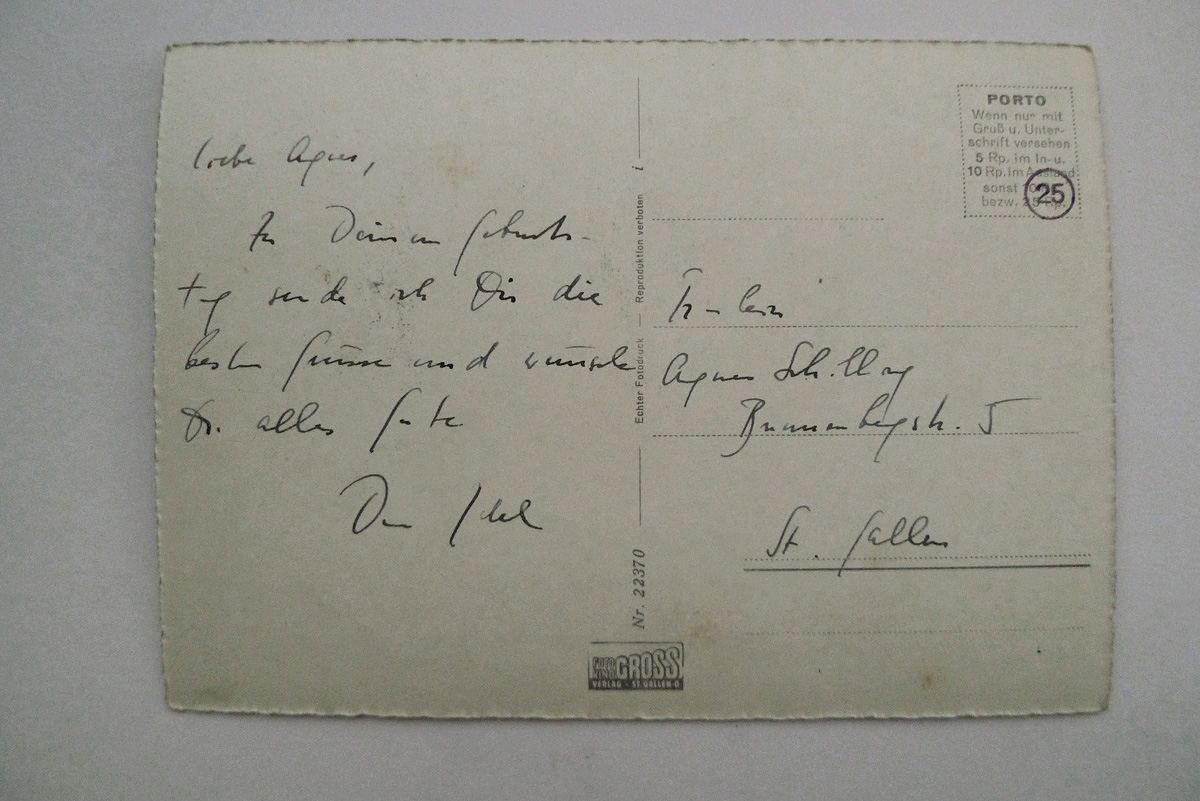 Liebe Agnes,
Zu Deinem Geburts-
tag sende ich Dir die
besten Grüsse und wünsche
Dir alles Gute
Dein
Echter Fotodruck — Reproduktion verboten
i
Nr. 22370
PORTO
Wenn nur mit
Gruß u. Unter-
schrift versehen
5 Rp. im In- u.
10 Rp. im Ausland
sonst
bezw. 25 Rp.
25
Fräulein
Agnes Schilling
Brunnenbergstr. 5
St. Gallen
FOTO
KINO
GROSS
VERLAG - ST. GALLEN-O